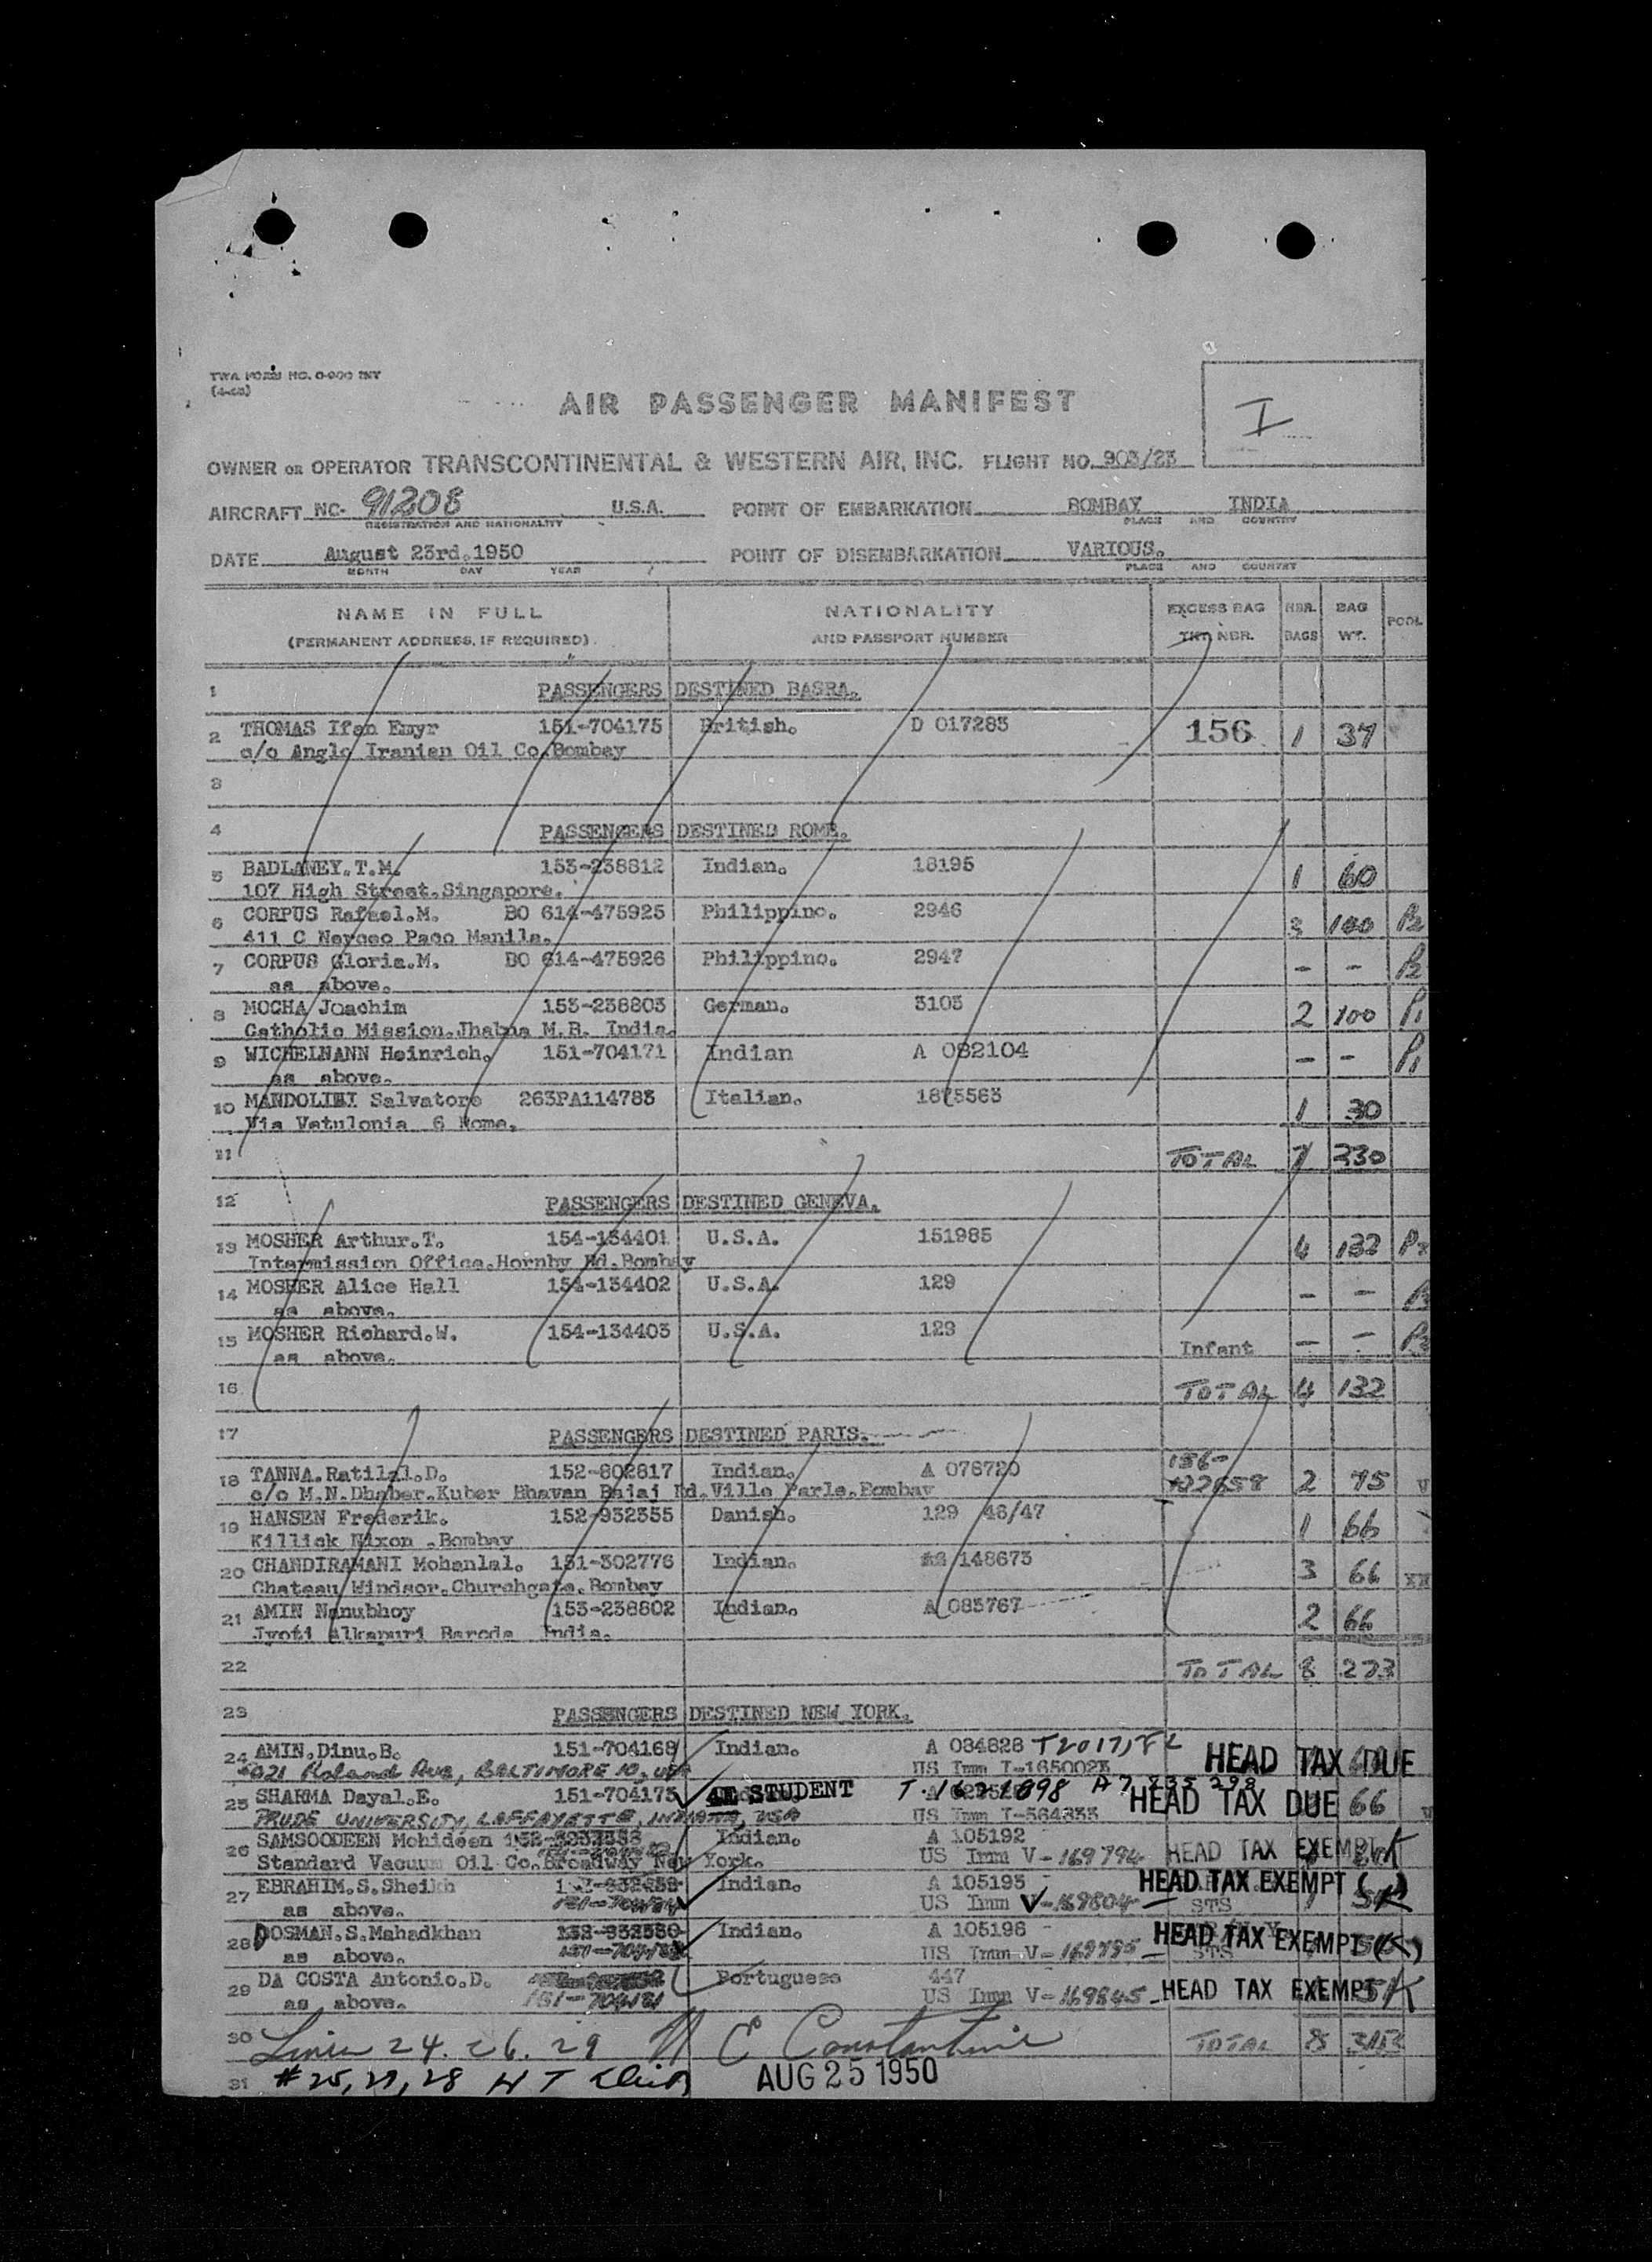 TWA FORM NO. 0-900 INT
AIR PASSENGER MANIFEST
I
OWNER OR OPERATOR TRANSCONTINENTAL & WESTERN AIR, INC. FLIGHT NO. 903/23
AIRCRAFT NC- 91208 U.S.A. POINT OF EMBARKATION BOMBAY INDIA
REGISTRATION AND NATIONALITY PLACE AND COUNTRY
DATE August 23rd.1950 POINT OF DISEMBARKATION VARIOUS.
MONTH DAY YEAR PLACE AND COUNTRY
NAME IN FULL NATIONALITY EXCESS BAG NBR. BAG POOL
(PERMANENT ADDRESS, IF REQUIRED) AND PASSPORT NUMBER TKT NBR. BAGS WT.
1 PASSENGERS DESTINED BASRA.
2 THOMAS Ifan Emyr 151-704175 British. D 017283 156 1 37
c/o Anglo Iranian Oil Co.Bombay
3
4 PASSENGERS DESTINED ROME.
5 BADLANEY.T.M. 153-238812 Indian. 18195 1 60
107 High Street.Singapore.
6 CORPUS Rafael.M. BO 614-475925 Philippino. 2946 3 140 P2
411 C Paco Manila.
7 CORPUS Gloria.M. BO 614-475926 Philippino. 2947 - - P2
as above.
8 MOCHA Joachim 153-238803 German. 3103 2 100 P1
Catholic Mission.Jhabua M.B. India.
9 WICHELMANN Heinrich. 151-704171 Indian A 082104 - - P1
as above.
10 MANDOLINI Salvatore 263PA114783 Italian. 1875563 1 30
Via Vetulonia 6 Rome.
11 TOTAL 7 330
12 PASSENGERS DESTINED GENEVA.
13 MOSHER Arthur.T. 154-134401 U.S.A. 151985 4 132 P3
Intermission Office.Hornby Rd.Bombay
14 MOSHER Alice Hall 154-134402 U.S.A. 129 - -
as above.
15 MOSHER Richard.W. 154-134403 U.S.A. 129 Infant - - P3
as above.
16 TOTAL 4 132
17 PASSENGERS DESTINED PARIS.
18 TANNA.Ratilal.D. 152-802817 Indian. A 078720 156- 2 75
c/o M.N.Dhaber.Kuber Bhavan Bajaj Rd.Ville Parle.Bombay
19 HANSEN Frederik. 152-932355 Danish. 129 46/47 1 66
Killick Nixon .Bombay
20 CHANDIRAMANI Mohanlal. 151-302776 Indian. 148673 3 66
Chateau Windsor.Churchgate.Bombay
21 AMIN Nanubhoy 153-238802 Indian. A 083767 2 66
Jyoti Alkapuri Baroda India.
22 TOTAL 8 273
23 PASSENGERS DESTINED NEW YORK.
24 AMIN.Dinu.B. 151-704168 Indian. A 084828 HEAD TAX DUE
Roland Ave, BALTIMORE 10, USA US Imm I-1650023
25 SHARMA Dayal.E. 151-704173 4E STUDENT HEAD TAX DUE 66
PRUDE UNIVERSITY, LAFFAYETTE, INDIANA, USA US Imm I-564333
26 SAMSOODEEN Mohideen Indian. A 105192 HEAD TAX EXEMPT
Standard Vacuum Oil Co.Broadway New York. US Imm V-169794
27 EBRAHIM.S.Sheikh Indian. A 105195 HEAD TAX EXEMPT
as above. US Imm V-169804 STS
28 DOSMAN.S.Mahadkhan Indian. A 105196 HEAD TAX EXEMPT
as above. US Imm V-169795 STS
29 DA COSTA Antonio.D. Portuguese 447
as above. 151-704181 US Imm V-169845 HEAD TAX EXEMPT
30 Lines 24. 26. 29 C Constantine TOTAL 8
31 #25, 27, 28 AUG 25 1950